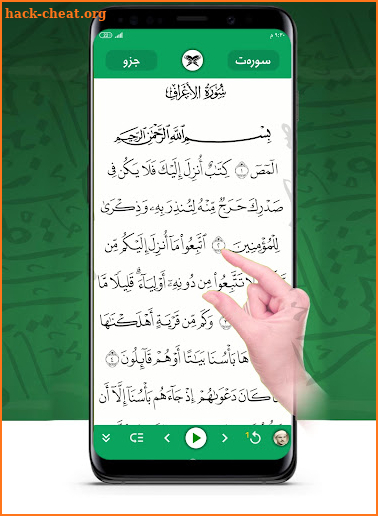 hack-cheat.org
٩:٣٠ م
سورەت جزو
سُورَةُ الأَعْرَافِ
بِسْمِ ٱللَّهِ ٱلرَّحْمَٰنِ ٱلرَّحِيمِ
الٓمٓصٓ ١ كِتَٰبٌ أُنزِلَ إِلَيْكَ فَلَا يَكُن فِى
صَدْرِكَ حَرَجٌ مِّنْهُ لِتُنذِرَ بِهِۦ وَذِكْرَىٰ
لِلْمُؤْمِنِينَ ٢ ٱتَّبِعُوا۟ مَآ أُنزِلَ إِلَيْكُم مِّن
لَا تَتَّبِعُوا۟ مِن دُونِهِۦٓ أَوْلِيَآءَ ۗ قَلِيلًا مَّا
وَكَم مِّن قَرْيَةٍ أَهْلَكْنَٰهَا
هَا بَأْسُنَا بَيَٰتًا أَوْ هُمْ قَآئِلُونَ ٤
ا كَانَ دَعْوَىٰهُمْ إِذْ جَآءَهُم بَأْسُنَآ إِلَّآ أَن
1
hack-cheat.org